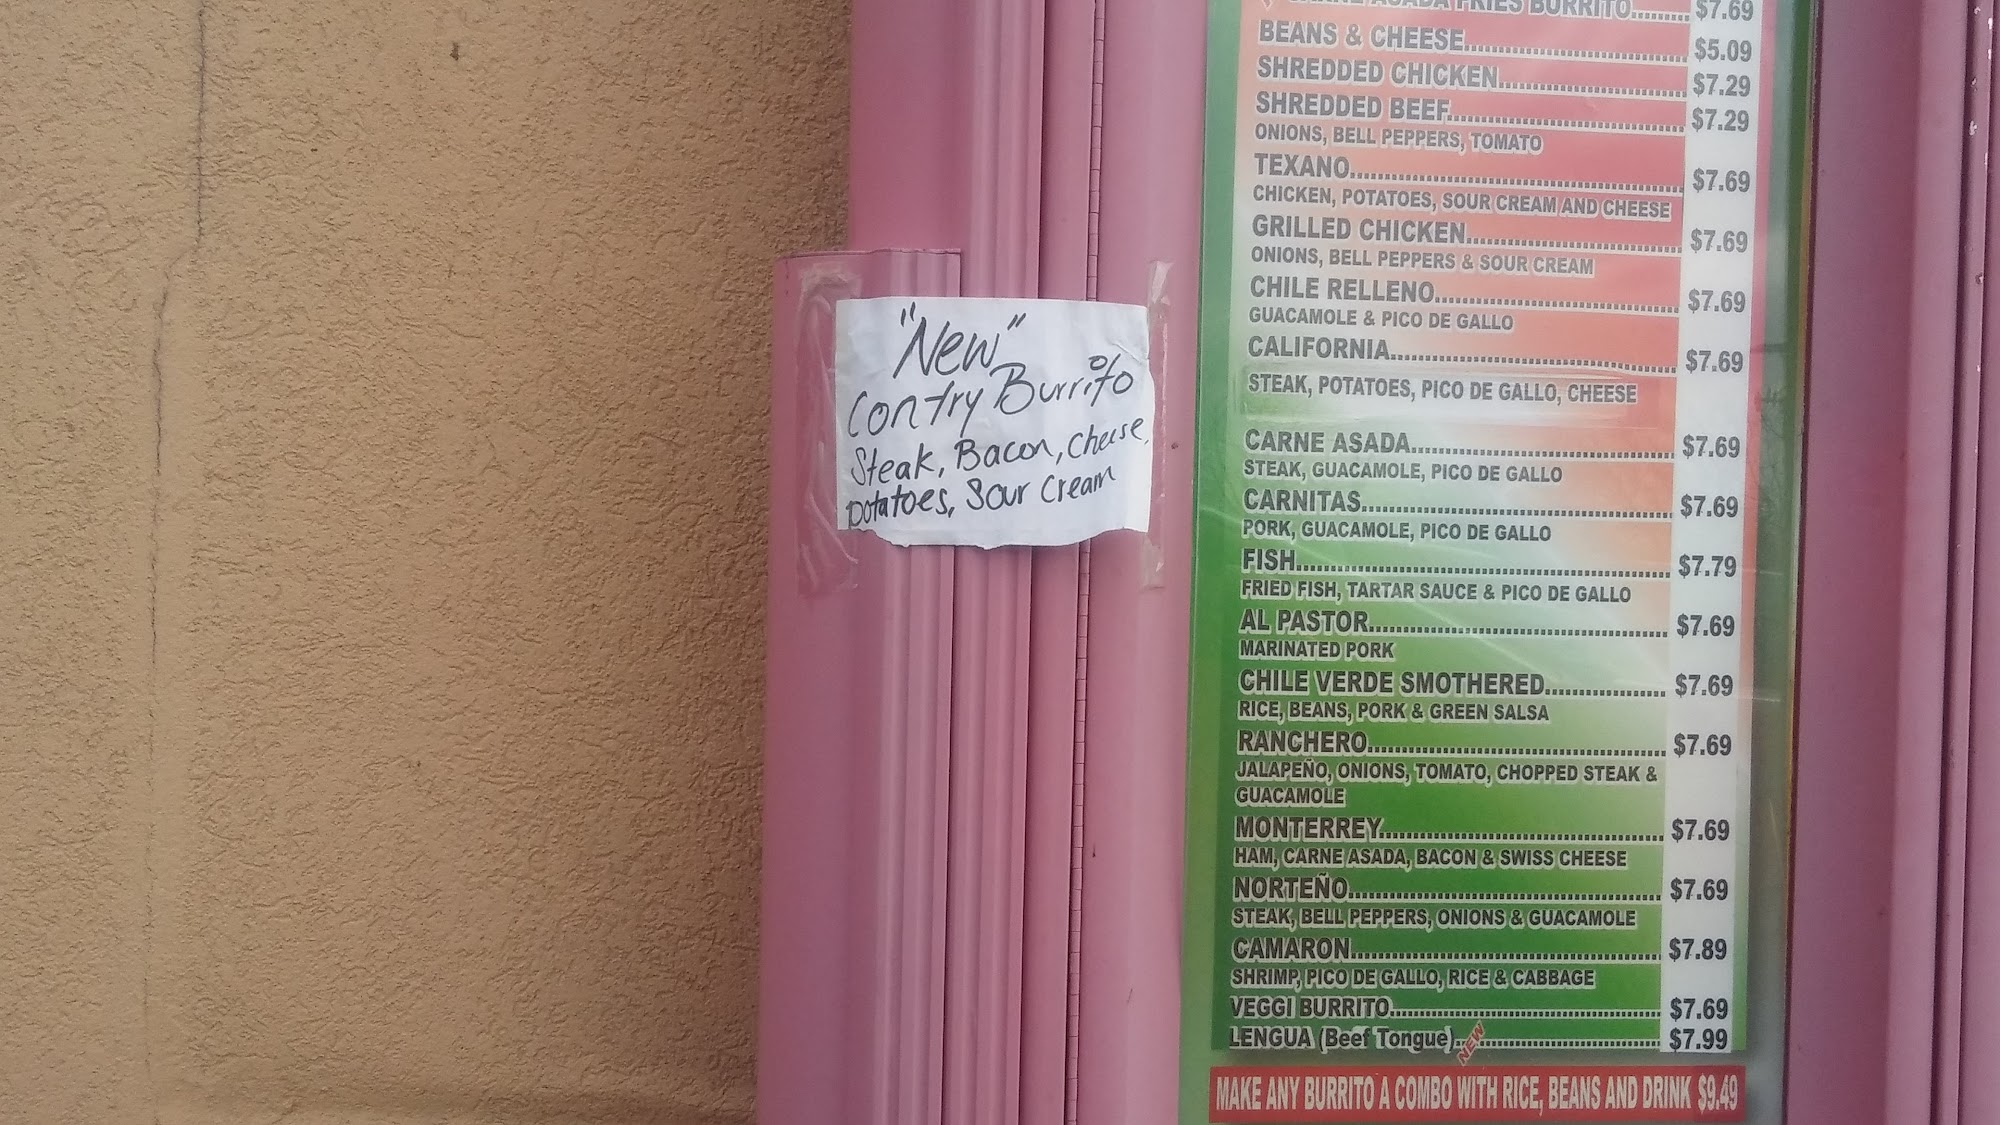 "New"
Contry Burrito
Steak, Bacon, Cheese,
potatoes, Sour Cream
CARNE ASADA FRIES BURRITO.......... $7.69
BEANS & CHEESE.......... $5.09
SHREDDED CHICKEN.......... $7.29
SHREDDED BEEF.......... $7.29
ONIONS, BELL PEPPERS, TOMATO
TEXANO.......... $7.69
CHICKEN, POTATOES, SOUR CREAM AND CHEESE
GRILLED CHICKEN.......... $7.69
ONIONS, BELL PEPPERS & SOUR CREAM
CHILE RELLENO.......... $7.69
GUACAMOLE & PICO DE GALLO
CALIFORNIA.......... $7.69
STEAK, POTATOES, PICO DE GALLO, CHEESE
CARNE ASADA.......... $7.69
STEAK, GUACAMOLE, PICO DE GALLO
CARNITAS.......... $7.69
PORK, GUACAMOLE, PICO DE GALLO
FISH.......... $7.79
FRIED FISH, TARTAR SAUCE & PICO DE GALLO
AL PASTOR.......... $7.69
MARINATED PORK
CHILE VERDE SMOTHERED.......... $7.69
RICE, BEANS, PORK & GREEN SALSA
RANCHERO.......... $7.69
JALAPEÑO, ONIONS, TOMATO, CHOPPED STEAK &
GUACAMOLE
MONTERREY.......... $7.69
HAM, CARNE ASADA, BACON & SWISS CHEESE
NORTEÑO.......... $7.69
STEAK, BELL PEPPERS, ONIONS & GUACAMOLE
CAMARON.......... $7.89
SHRIMP, PICO DE GALLO, RICE & CABBAGE
VEGGI BURRITO.......... $7.69
LENGUA (Beef Tongue).. NEW .......... $7.99
MAKE ANY BURRITO A COMBO WITH RICE, BEANS AND DRINK $9.49